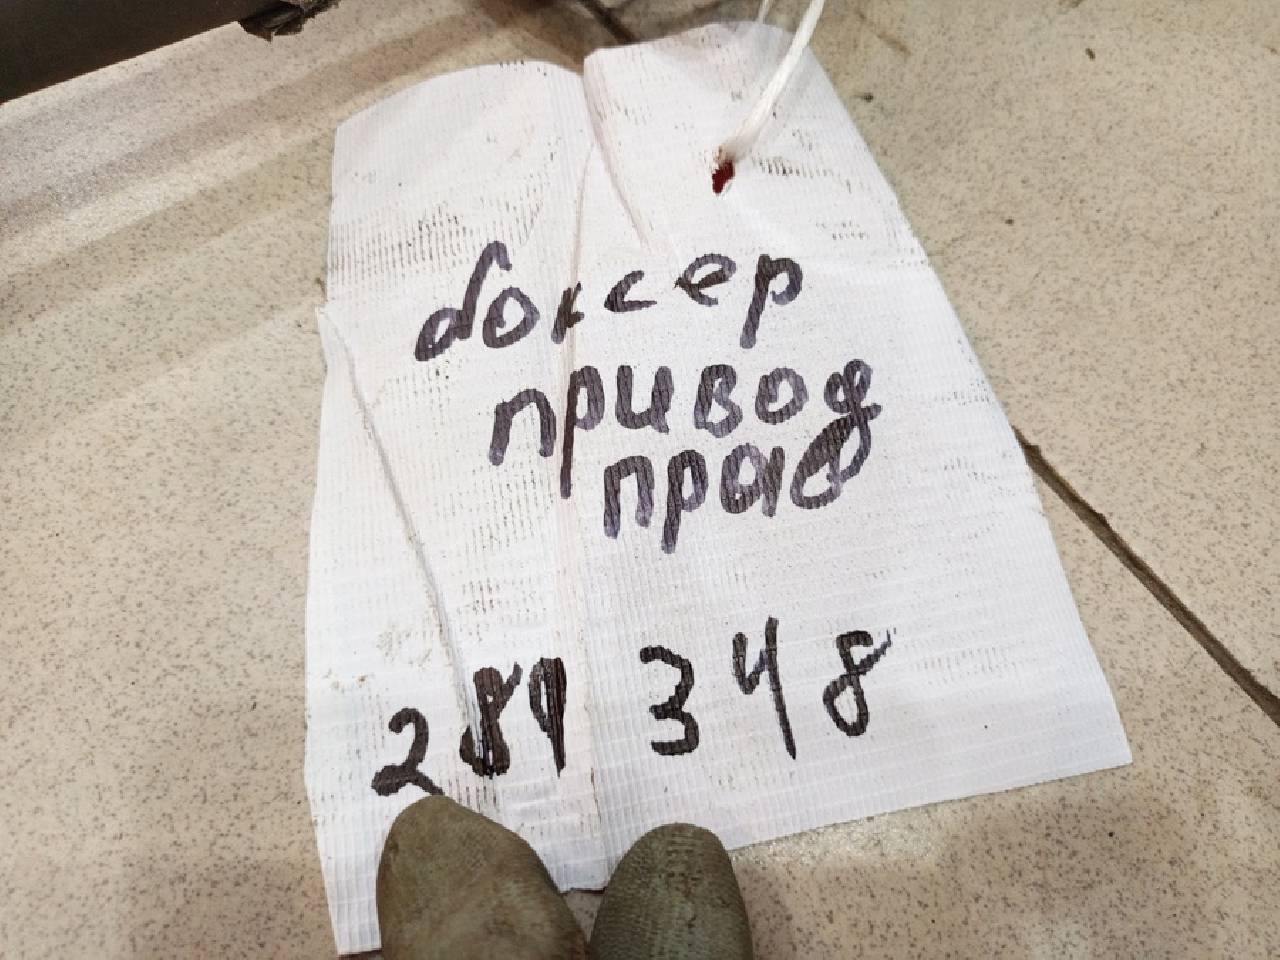 боксер
привод
прав
289 348